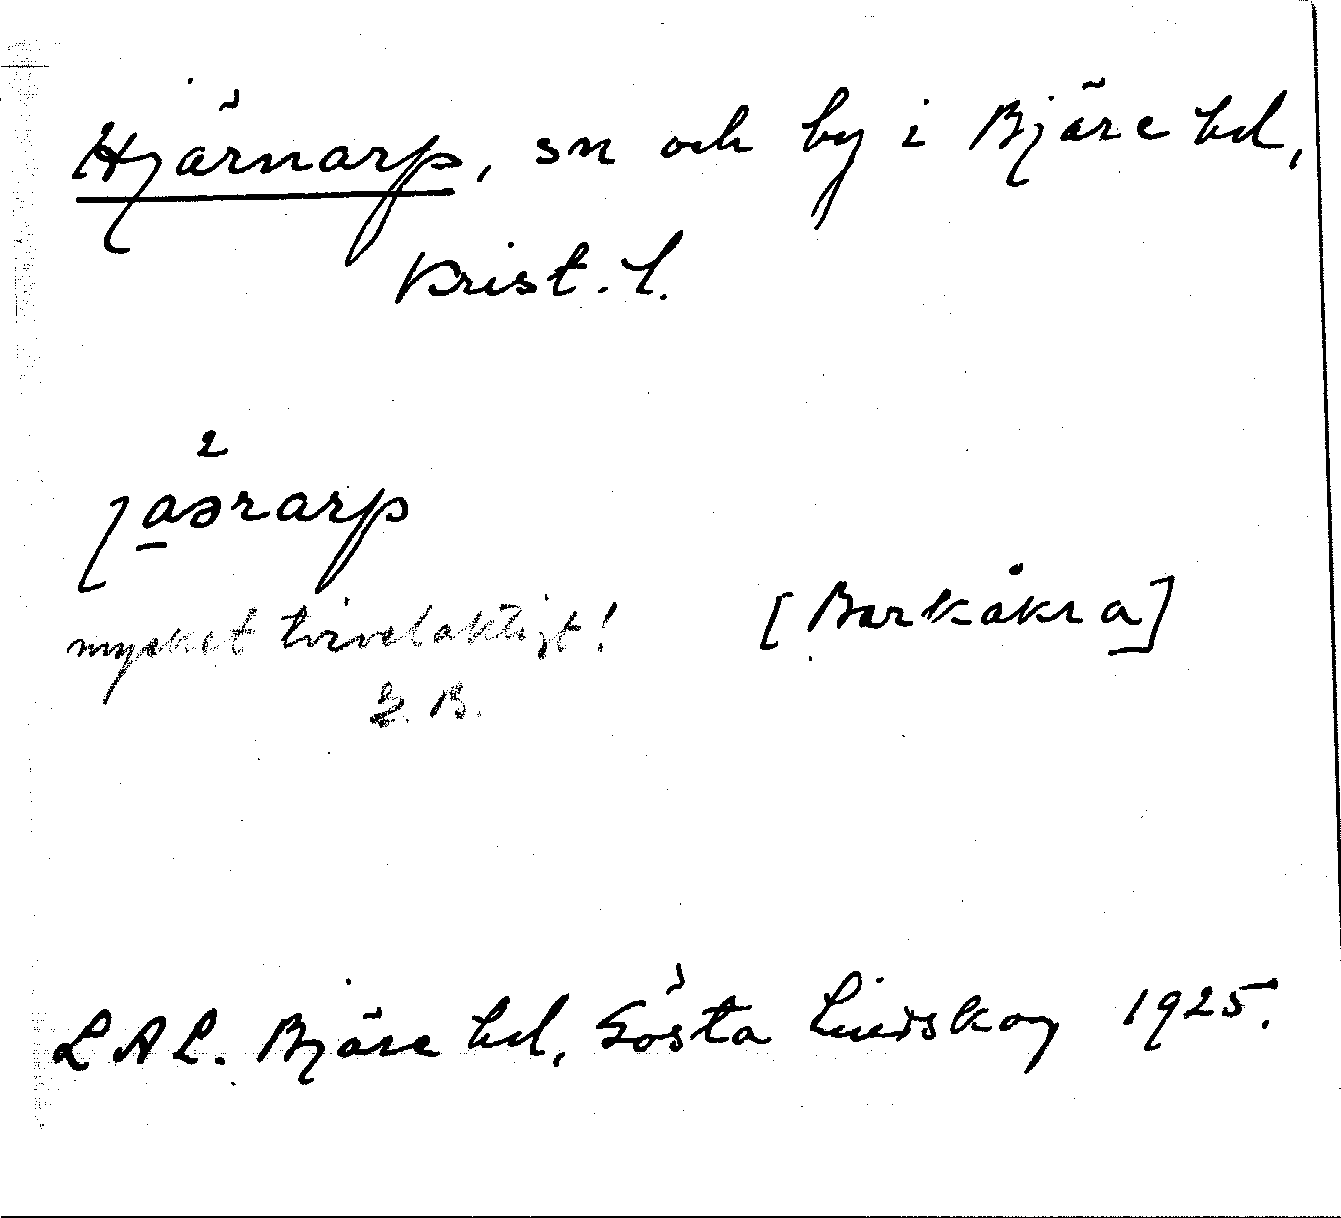 Hjärnarp, sn och by i Bjäre hd,
Krist. l.
2
ja̲ərarp
mycket tvivelaktigt! [Barkåkra]
B.
LAL. Bjäre hd, Gösta Lindskog 1925.